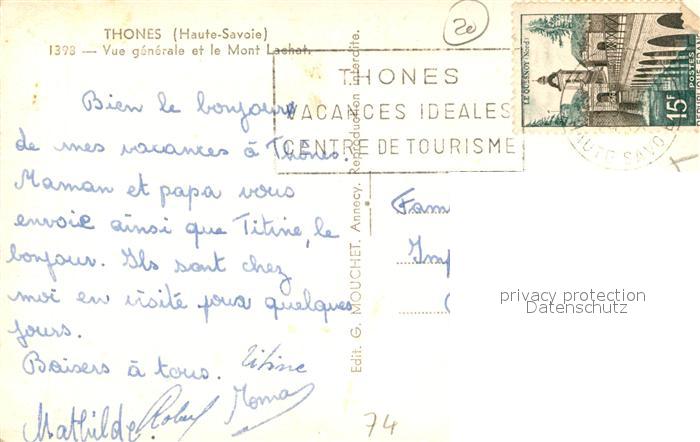 THONES (Haute-Savoie)
1398 — Vue générale et le Mont Lachat.
20
THONES
VACANCES IDEALES
CENTRE DE TOURISME
LE QUESNOY (Nord)
15F
POSTES
HAUTE SAVO
Bien le bonjour
de mes vacances à Thônes.
Maman et papa vous
envoie ainsi que Titine, le
bonjour. Ils sont chez
moi en visite pour quelques
jours.
Baisers à tous. Titine
Mathilde. Moma
Edit. G. MOUCHET, Annecy. Reproduction interdite.
Fam
Imp
privacy protection
Datenschutz
74